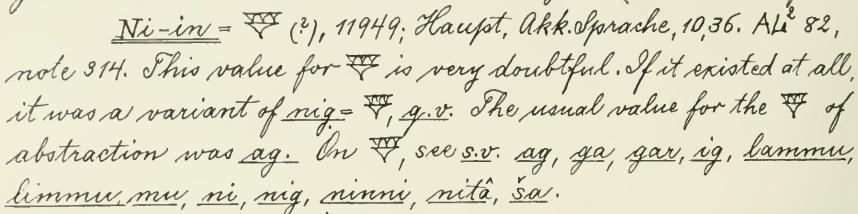 Ni-in = 𒃻 (?), 11949; Haupt, Akk. Sprache, 10,36. AL² 82,
note 314. This value for 𒃻 is very doubtful. If it existed at all,
it was a variant of nig = 𒃻, q.v. The usual value for the 𒃻 of
abstraction was ag. On 𒃻, see s.v. ag, ga, gar, ig, lammu,
limmu, mu, ni, nig, ninni, nitâ, ša.